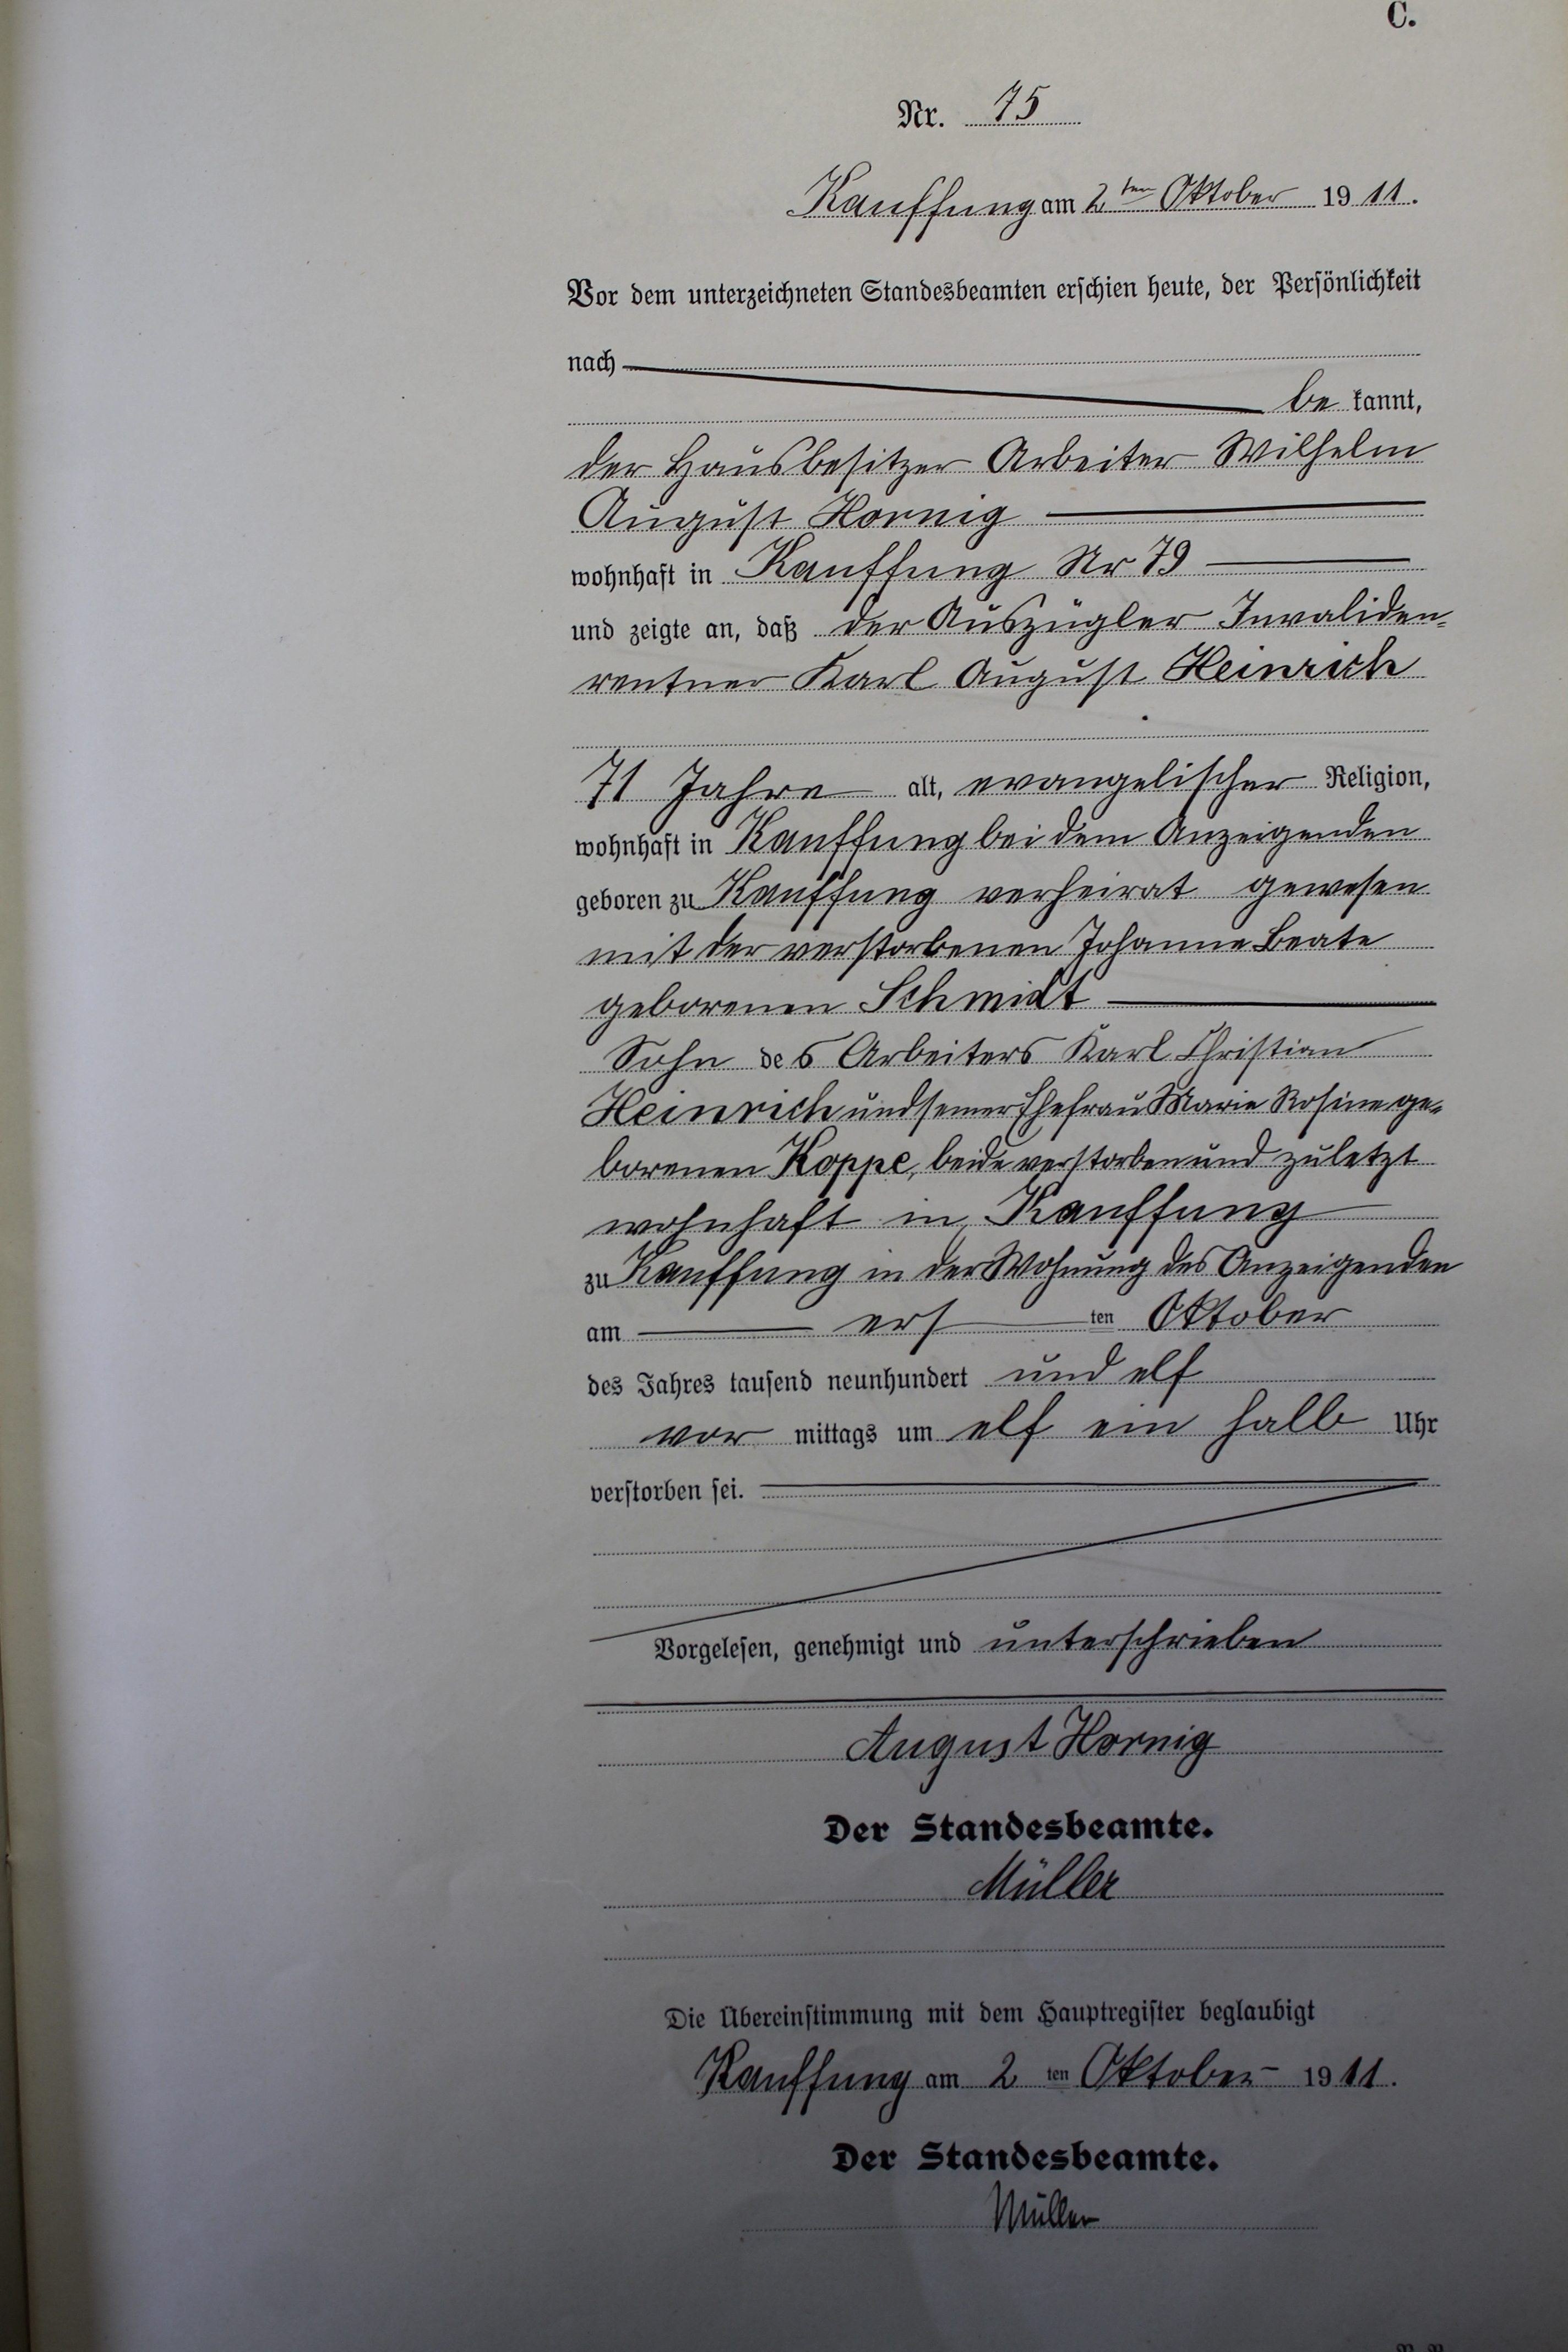 C.
Nr. 75
Kauffung am 2ten Oktober 1911.
Vor dem unterzeichneten Standesbeamten erschien heute, der Persönlichkeit
nach
be kannt,
der Hausbesitzer Arbeiter Wilhelm
August Hornig
wohnhaft in Kauffung Nr 79
und zeigte an, daß der Auszügler Invaliden-
rentner Karl August Heinrich
71 Jahre alt, evangelischer Religion,
wohnhaft in Kauffung bei dem Anzeigenden
geboren zu Kauffung verheirat gewesen
mit der verstorbenen Johanne Beate
geborenen Schmidt
Sohn des Arbeiters Karl Christian
Heinrich und seiner Ehefrau Marie Rosine ge-
borenen Koppe, beide verstorben und zuletzt
wohnhaft in Kauffung
zu Kauffung in der Wohnung des Anzeigenden
am ers ten Oktober
des Jahres tausend neunhundert und elf
vor mittags um elf ein halb Uhr
verstorben sei.
Vorgelesen, genehmigt und unterschrieben
August Hornig
Der Standesbeamte.
Müller
Die Übereinstimmung mit dem Hauptregister beglaubigt
Kauffung am 2 ten Oktober 1911.
Der Standesbeamte.
Müller